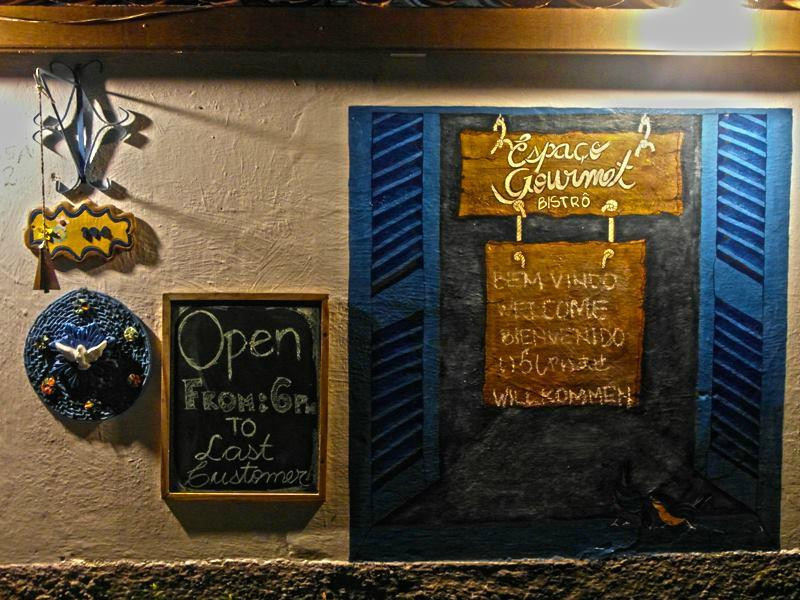 Open
FROM: 6PM
TO
Last
Customer
Espaço
Gourmet
BISTRÔ
BEM VINDO
WELCOME
BIENVENIDO
WILLKOMMEN